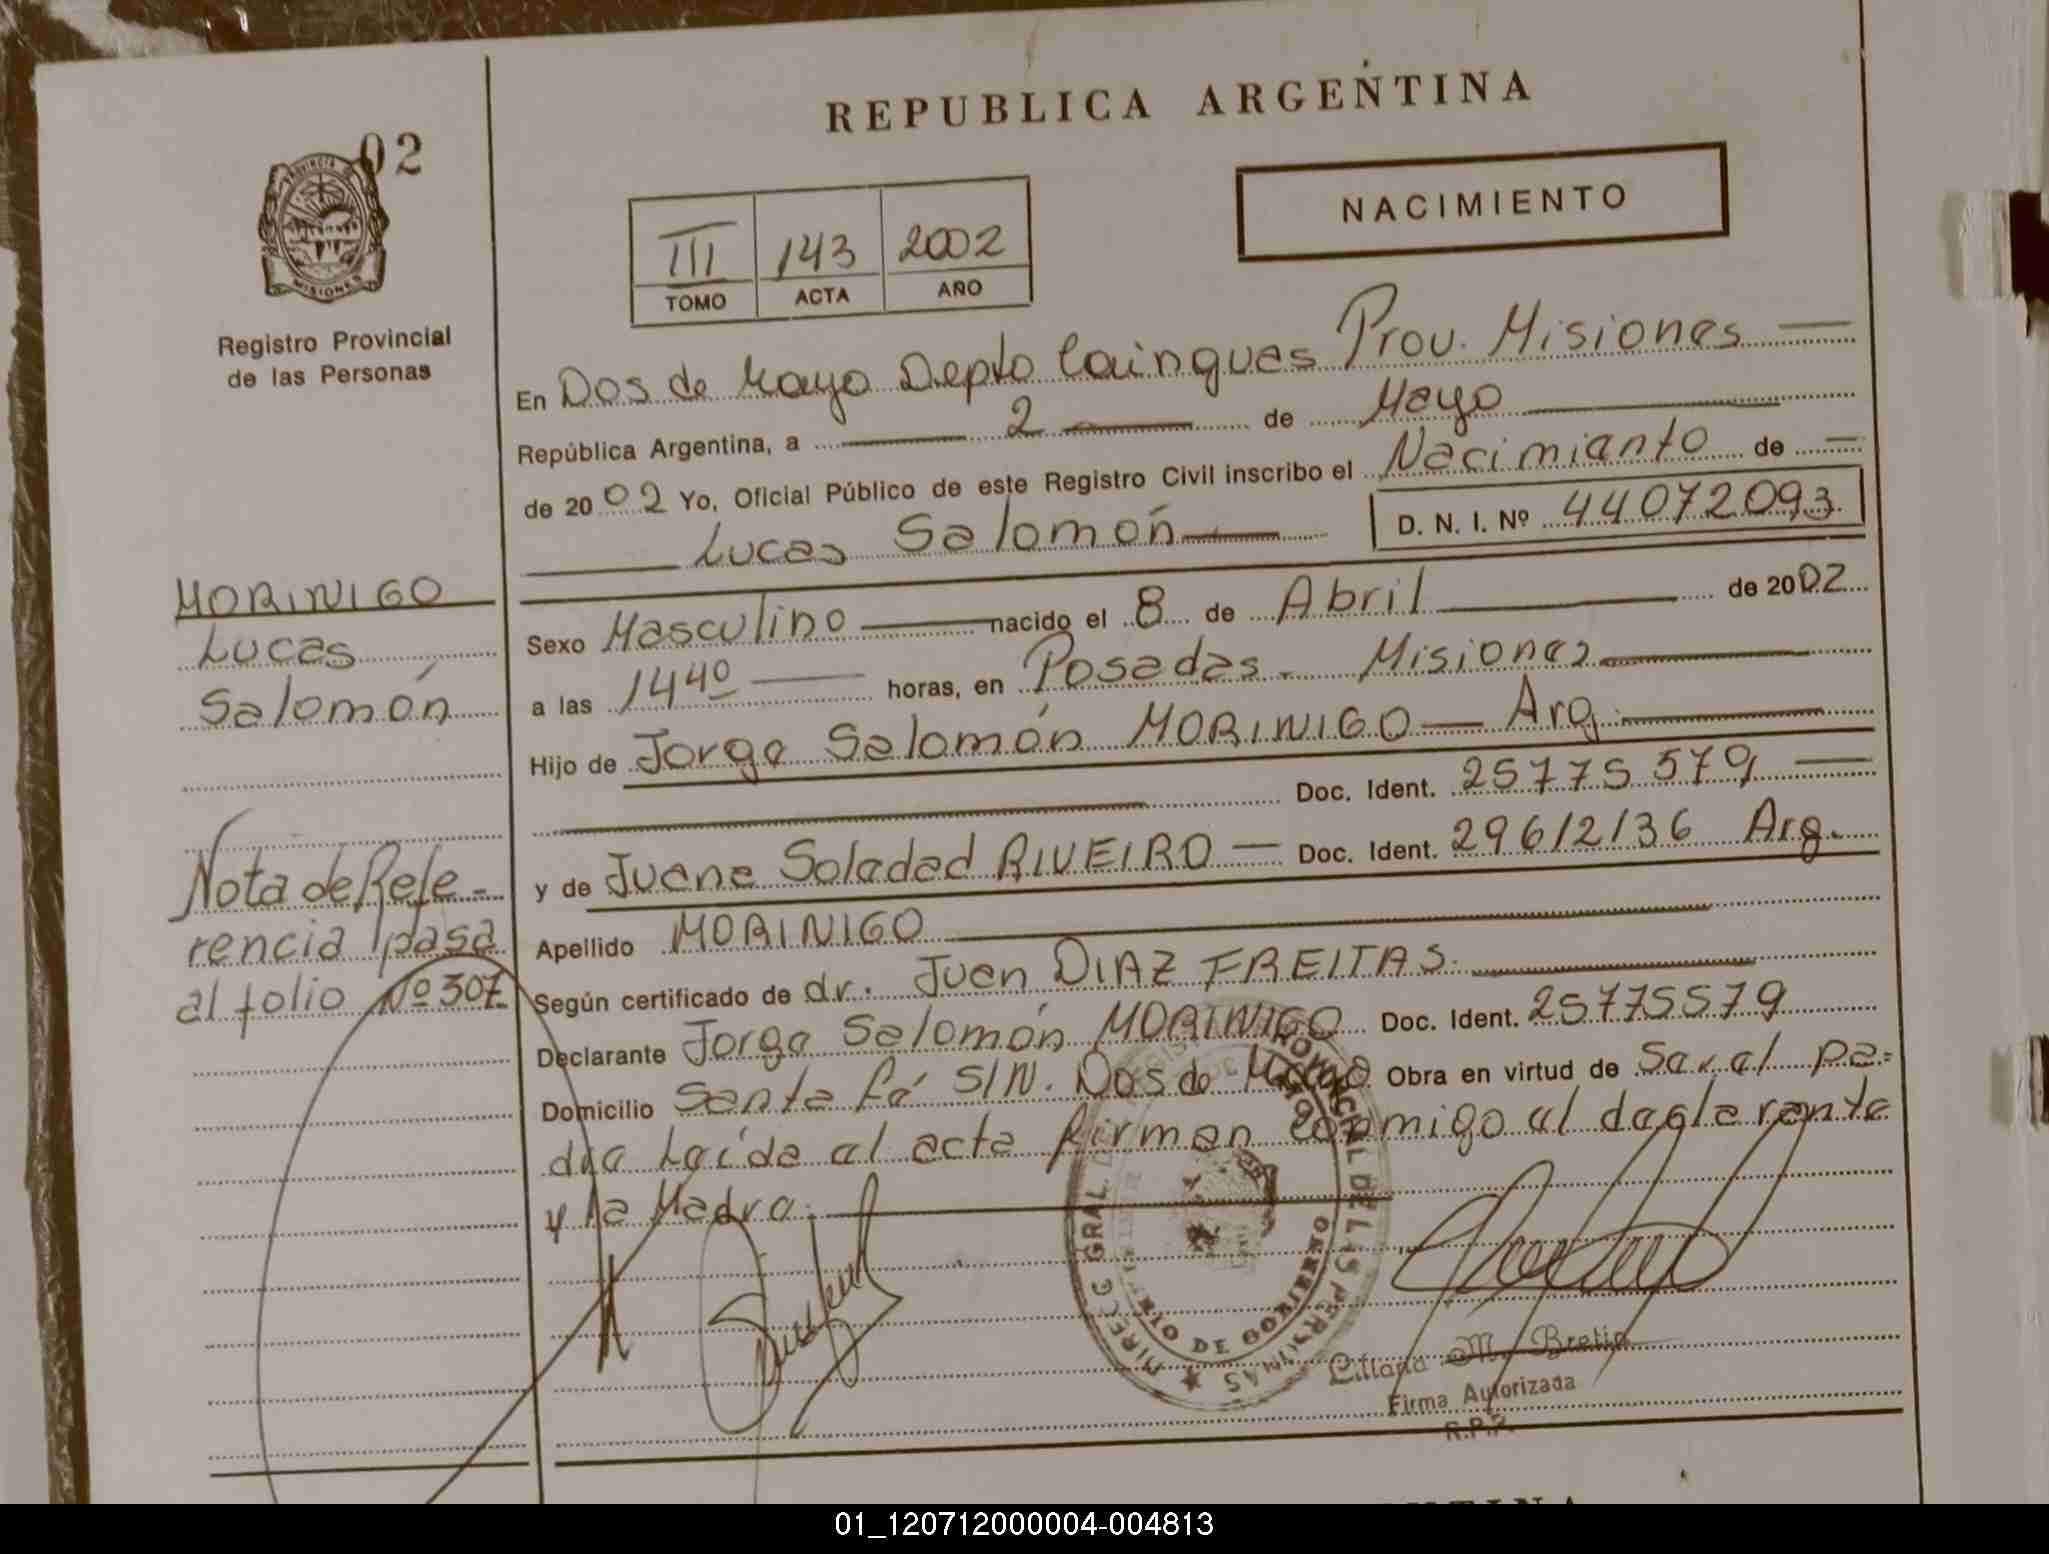 REPUBLICA ARGENTINA
02
PROVINCIA DE
MISIONES
Registro Provincial
de las Personas
NACIMIENTO
III 143 2002
TOMO ACTA AÑO
En Dos de Mayo Depto Cainguas Prov. Misiones
República Argentina, a 2 de Mayo
de 2002 Yo, Oficial Público de este Registro Civil inscribo el Nacimiento de
Lucas Salomón D. N. I. Nº 44072093
MORINIGO
Lucas
Salomón
Sexo Masculino nacido el 8 de Abril de 2002
a las 1440 horas, en Posadas - Misiones
Hijo de Jorge Salomón MORINIGO — Arg.
Doc. Ident. 25775579
y de Juana Soledad RIVEIRO — Doc. Ident. 29612136 Arg.
Apellido MORINIGO
Según certificado de dr. Juan DIAZ FREITAS.
Declarante Jorge Salomón MORINIGO Doc. Ident. 25775579
Domicilio Santa Fé S/N. Dos de Mayo Obra en virtud de Ser el pa-
dre Leída el acta firman conmigo el declarante
y la Madre.
Nota de Refe-
rencia pasa
al folio Nº 307
DIREC. GRAL. DEL REGISTRO PROVINCIAL DE LAS PERSONAS
MINISTERIO DE GOBIERNO
Liliana M. Bretin
Firma Autorizada
R.P.P.
01_120712000004-004813